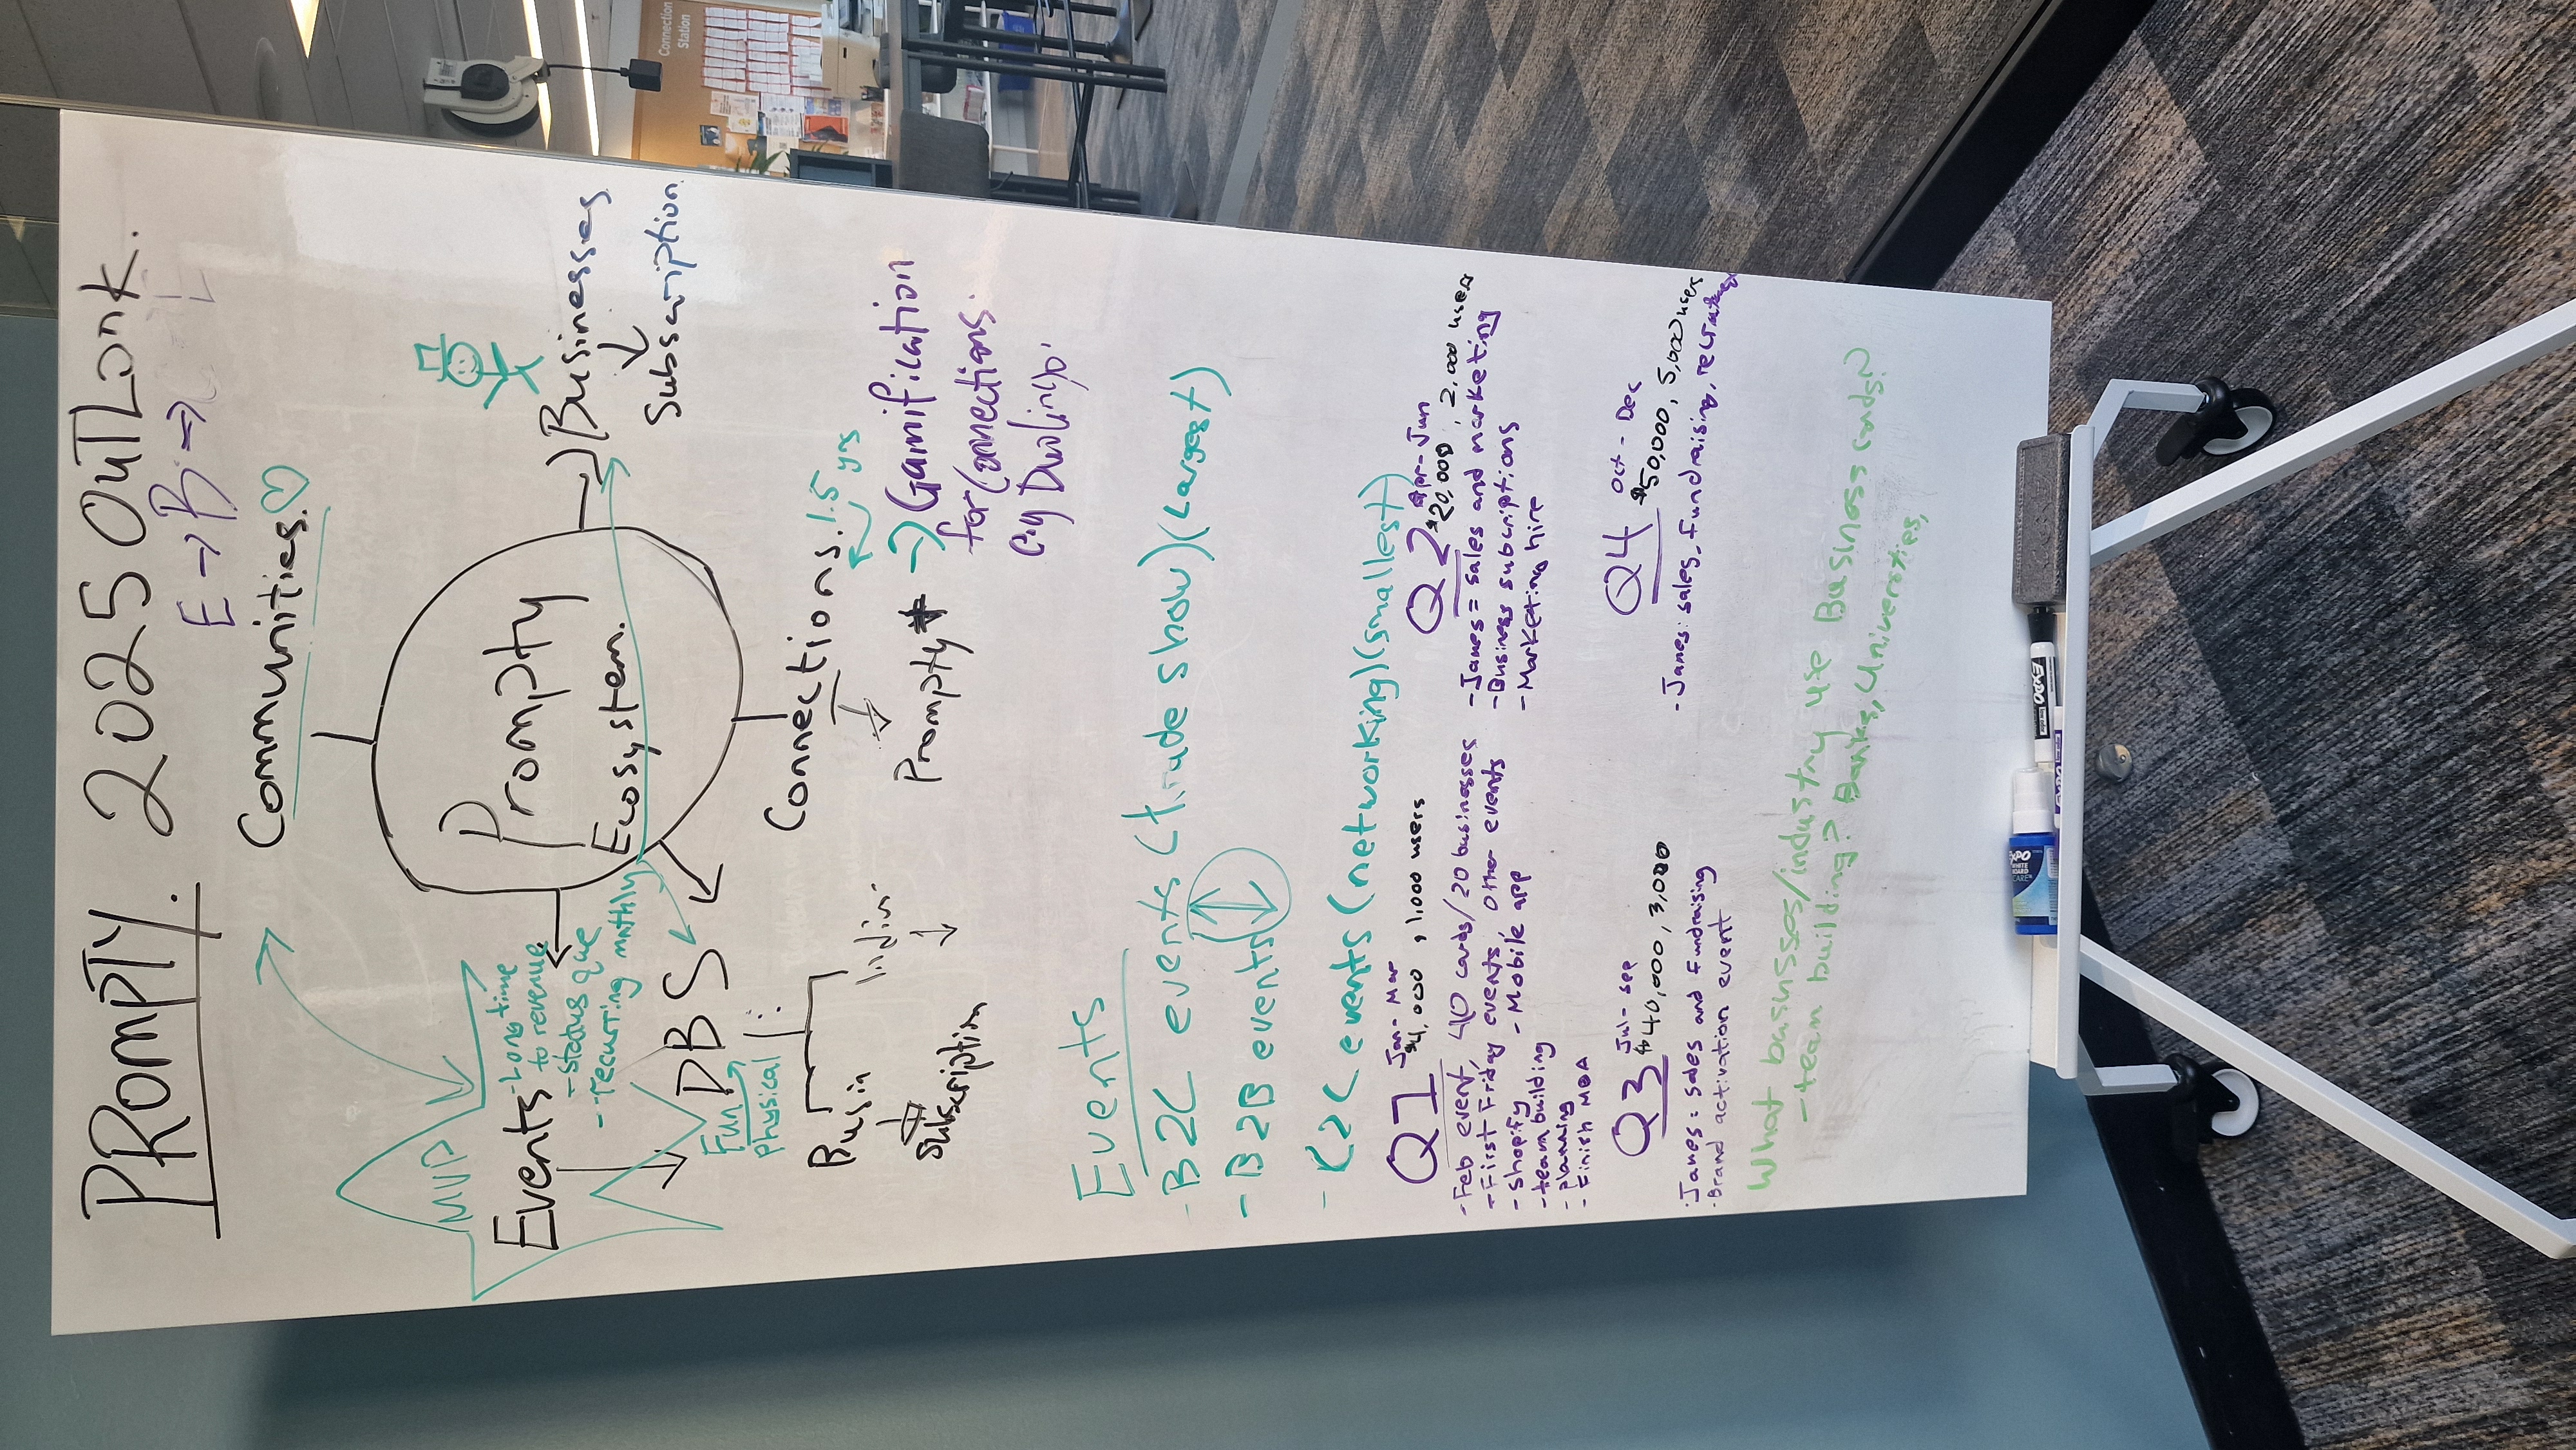 PROMPTY. 2025 OUTLOOK.
E → B →
Communities.
MVP
Events
-Long time
to revenue
-status que
-recurring mnthly
Prompty
Ecosystem.
Businesses
Subscription
DBS
Fun
physical
Busin
Indiv
subscription
Connections.
1.5
yrs
Prompty
→ Gamification
for Connections.
e.g Duolingo.
Events
-B2C events (trade show)(Largest)
-B2B events
-C2C events (networking)(smallest)
Q1 Jan-Mar
$4,000, 1,000 users
-Feb event, 40 cards/20 businesses
-First Friday events, other events
-Shopify -Mobile app
-team building
-planning
-Finish MBA
Q2 Apr-Jun
$20,000, 2,000 users
-James = sales and marketing
-Business subcriptions
-Marketing hire
Q3 Jul-sep
$40,000, 3,000
-James: sales and fundraising
-Brand activation event
Q4 Oct - Dec
$50,000, 5,000 users
-James: sales, fundraising,
What busineses/industry use Business cards?
-team building? Banks, Universities,
EXPO
EXPO
Connection
Station